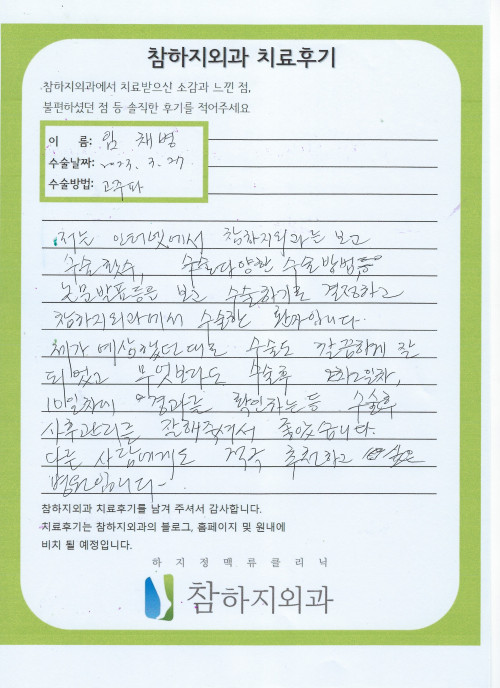 참하지외과 치료후기
참하지외과에서 치료받으신 소감과 느낀 점,
불편하셨던 점 등 솔직한 후기를 적어주세요
이 름: 임 채병
수술날짜: 2023. 3. 27
수술방법: 고주파
저는 인터넷에서 참하지외과는 보고
수술횟수, 수술다양한 수술방법,
논문발표등을 보고 수술하기로 결정하고
참하지외과에서 수술한 환자입니다.
제가 예상했던대로 수술도 깔끔하게 잘
되었고 무엇보다도 수술후 일차,
10일차에 경과를 확인하는등 수술후
사후관리를 잘해주셔서 좋았습니다.
다른 사람에게도 적극 추천하고 싶은
병원입니다-
참하지외과 치료후기를 남겨 주셔서 감사합니다.
치료후기는 참하지외과의 블로그, 홈페이지 및 원내에
비치 될 예정입니다.
하지정맥류클리닉
참하지외과